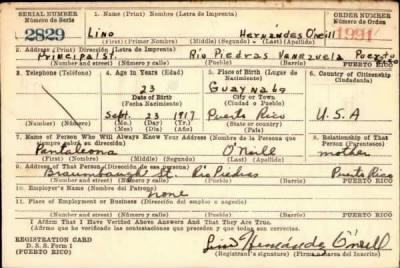 SERIAL NUMBER
Número de Serie
2829
1. Name (Print) Nombre (Letra de Imprenta)
Lino Hernández O'neill
(First) (Primer Nombre) (Middle) (Segundo) (Last) (Apellido)
ORDER NUMBER
Número de Orden
1991
2. Address (Print) Dirección (Letra de Imprenta)
Principal St. Rio Piedras Venezuela Puerto Rico
(Number and street) (Número y calle) (Town) (Pueblo) (Barrio) PUERTO RICO
3. Telephone (Teléfono)
4. Age in Years (Edad)
23
Date of Birth
(Fecha Nacimiento)
Sept. 23 1917
(Mo.) (Day) (Yr.)
(Mes) (Día) (Año)
5. Place of Birth (Lugar de Nacimiento)
Guaynabo
City or Town
(Ciudad o Pueblo)
Puerto Rico
(State or country)
(Estado o país)
6. Country of Citizenship
Ciudadanía
U.S.A
7. Name of Person Who Will Always Know Your Address (Nombre de la Persona que siempre sabrá su dirección)
Pantaleona O'Nill
(First) (Nombre) (Middle) (Segundo) (Last) (Apellido)
8. Relationship of That Person (Parentesco)
mother
9. Address of That Person (Dirección de esa persona)
St. Rio Piedras Puerto Rico
(Number and street) (Número y calle) (Town) (Pueblo) (Barrio) PUERTO RICO
10. Employer's Name (Nombre del Patrono)
none
11. Place of Employment or Business (Dirección del empleo o negocio)
(Number and street) (Número y calle) (Town) (Pueblo) (Barrio) PUERTO RICO
I Affirm That I Have Verified Above Answers and That They Are True.
(Afirmo que he verificado las contestaciones que preceden y que todas son correctas.
REGISTRATION CARD
D. S. S. Form 1
(Puerto Rico)
Lino Hernández O'neill
(Registrant's signature) (Firma o marca del Inscrito)